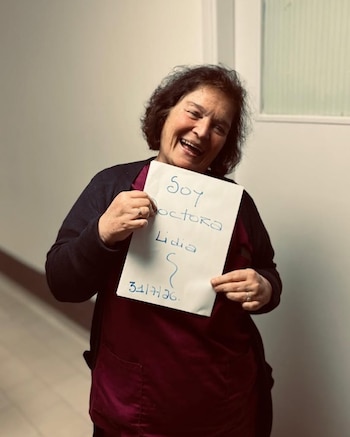 Soy
Doctora
Lidia
31/7/20.